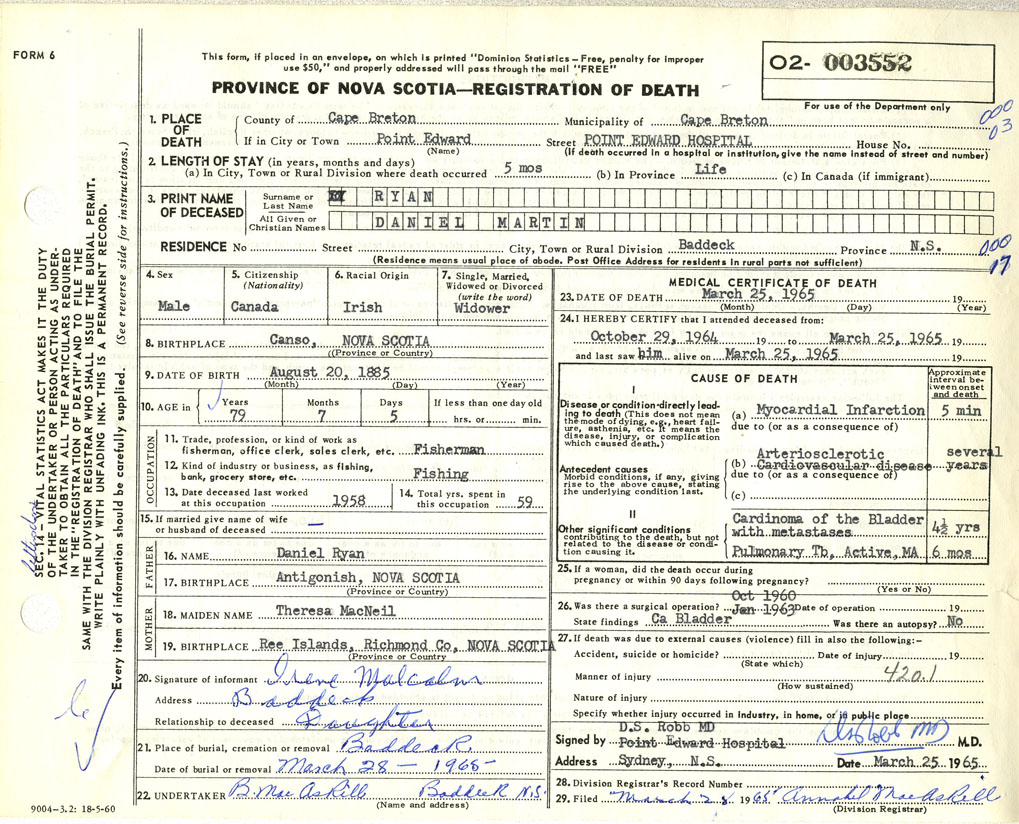 FORM 6
This form, if placed in an envelope, on which is printed "Dominion Statistics – Free, penalty for improper
use $50," and properly addressed will pass through the mail "FREE"
PROVINCE OF NOVA SCOTIA—REGISTRATION OF DEATH
O2- 003552
For use of the Department only
000
03
1. PLACE OF DEATH
County of Cape Breton Municipality of Cape Breton
If in City or Town Point Edward Street POINT EDWARD HOSPITAL House No.
(Name) (If death occurred in a hospital or institution, give the name instead of street and number)
2. LENGTH OF STAY (in years, months and days)
(a) In City, Town or Rural Division where death occurred 5 mos (b) In Province Life (c) In Canada (if immigrant)
3. PRINT NAME OF DECEASED
Surname or Last Name RYAN
All Given or Christian Names DANIEL MARTIN
RESIDENCE No Street City, Town or Rural Division Baddeck Province N.S.
(Residence means usual place of abode. Post Office Address for residents in rural parts not sufficient)
000
17
4. Sex
Male
5. Citizenship
(Nationality)
Canada
6. Racial Origin
Irish
7. Single, Married, Widowed or Divorced
(write the word)
Widower
8. BIRTHPLACE Canso, NOVA SCOTIA
(Province or Country)
9. DATE OF BIRTH August 20, 1885
(Month) (Day) (Year)
10. AGE in Years Months Days If less than one day old
79 7 5 hrs. or min.
OCCUPATION
11. Trade, profession, or kind of work as
fisherman, office clerk, sales clerk, etc. Fisherman
12. Kind of industry or business, as fishing,
bank, grocery store, etc. Fishing
13. Date deceased last worked
at this occupation 1958
14. Total yrs. spent in
this occupation 59
15. If married give name of wife
or husband of deceased —
FATHER
16. NAME Daniel Ryan
17. BIRTHPLACE Antigonish, NOVA SCOTIA
(Province or Country)
MOTHER
18. MAIDEN NAME Theresa MacNeil
19. BIRTHPLACE Ree Islands, Richmond Co, NOVA SCOTIA
(Province or Country
20. Signature of informant Irene Malcolm
Address Baddeck
Relationship to deceased Daughter
21. Place of burial, cremation or removal Baddeck
Date of burial or removal March 28 – 1965
22. UNDERTAKER B. MacAskill Baddeck N.S.
(Name and address)
MEDICAL CERTIFICATE OF DEATH
23. DATE OF DEATH March 25, 1965 19
(Month) (Day) (Year)
24. I HEREBY CERTIFY that I attended deceased from:
October 29, 1964 19 to March 25, 1965
and last saw him alive on March 25, 1965 19
CAUSE OF DEATH
Approximate interval between onset and death
I
Disease or condition directly leading to death (This does not mean the mode of dying, e.g., heart failure, asthenia, etc. It means the disease, injury, or complication which caused death.)
(a) Myocardial Infarction 5 min
due to (or as a consequence of)
Antecedent causes
Morbid conditions, if any, giving rise to the above cause, stating the underlying condition last.
Arteriosclerotic several
(b) Cardiovascular disease years
due to (or as a consequence of)
(c)
II
Other significant conditions
contributing to the death, but not related to the disease or condition causing it.
Cardinoma of the Bladder
with metastases 4½ yrs
Pulmonary Tb, Active, MA 6 mos
25. If a woman, did the death occur during
pregnancy or within 90 days following pregnancy?
(Yes or No)
Oct 1960
26. Was there a surgical operation? Jan 1963 Date of operation 19
State findings Ca Bladder Was there an autopsy? No
27. If death was due to external causes (violence) fill in also the following:–
Accident, suicide or homicide? Date of injury 19
(State which)
Manner of injury 420.1
(How sustained)
Nature of injury
Specify whether injury occurred in Industry, in home, or in public place
D.S. Robb MD
Signed by Point Edward Hospital DS Robb MD M.D.
Address Sydney, N.S. Date March 25 1965
28. Division Registrar's Record Number
29. Filed March 28 1965 Annabel MacAskill
(Division Registrar)
SEC. 14 – VITAL STATISTICS ACT MAKES IT THE DUTY
OF THE UNDERTAKER OR PERSON ACTING AS UNDER-
TAKER TO OBTAIN ALL THE PARTICULARS REQUIRED
IN THE "REGISTRATION OF DEATH" AND TO FILE THE
SAME WITH THE DIVISION REGISTRAR WHO SHALL ISSUE THE BURIAL PERMIT.
WRITE PLAINLY WITH UNFADING INK. THIS IS A PERMANENT RECORD.
Every item of information should be carefully supplied. (See reverse side for instructions.)
9004–3.2: 18-5-60